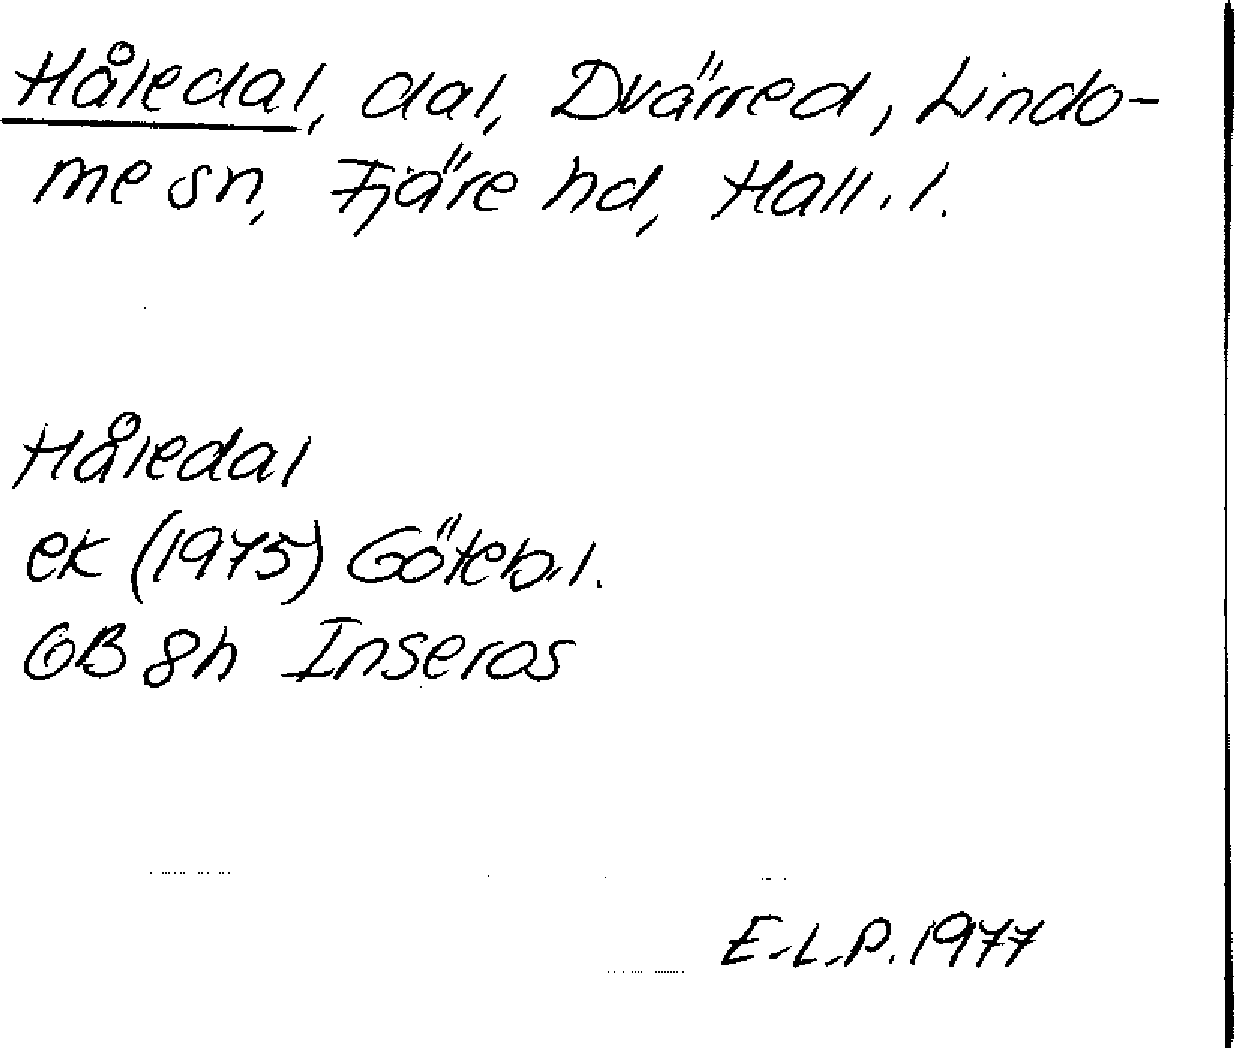 Håledal, dal, Dvärred, Lindo-
me sn, Fjäre hd, Hall. l.
Håledal
ek (1975) Göteb. l.
GB 8h Inseros
E.L.P. 1977